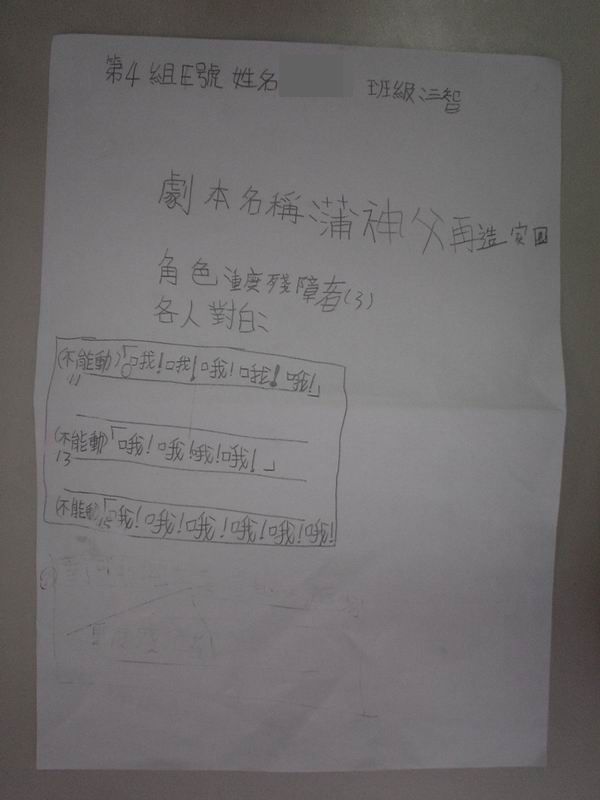 第4組E號 姓名 班級三智
劇本名稱:蒲神父再造家園
角色重度殘障者(3)
各人對白:
(不能動)「哦!哦!哦!哦!哦!」
11
(不能動)「哦!哦!哦!哦!」
13
(不能動)「哦!哦!哦!哦!哦!哦!
15